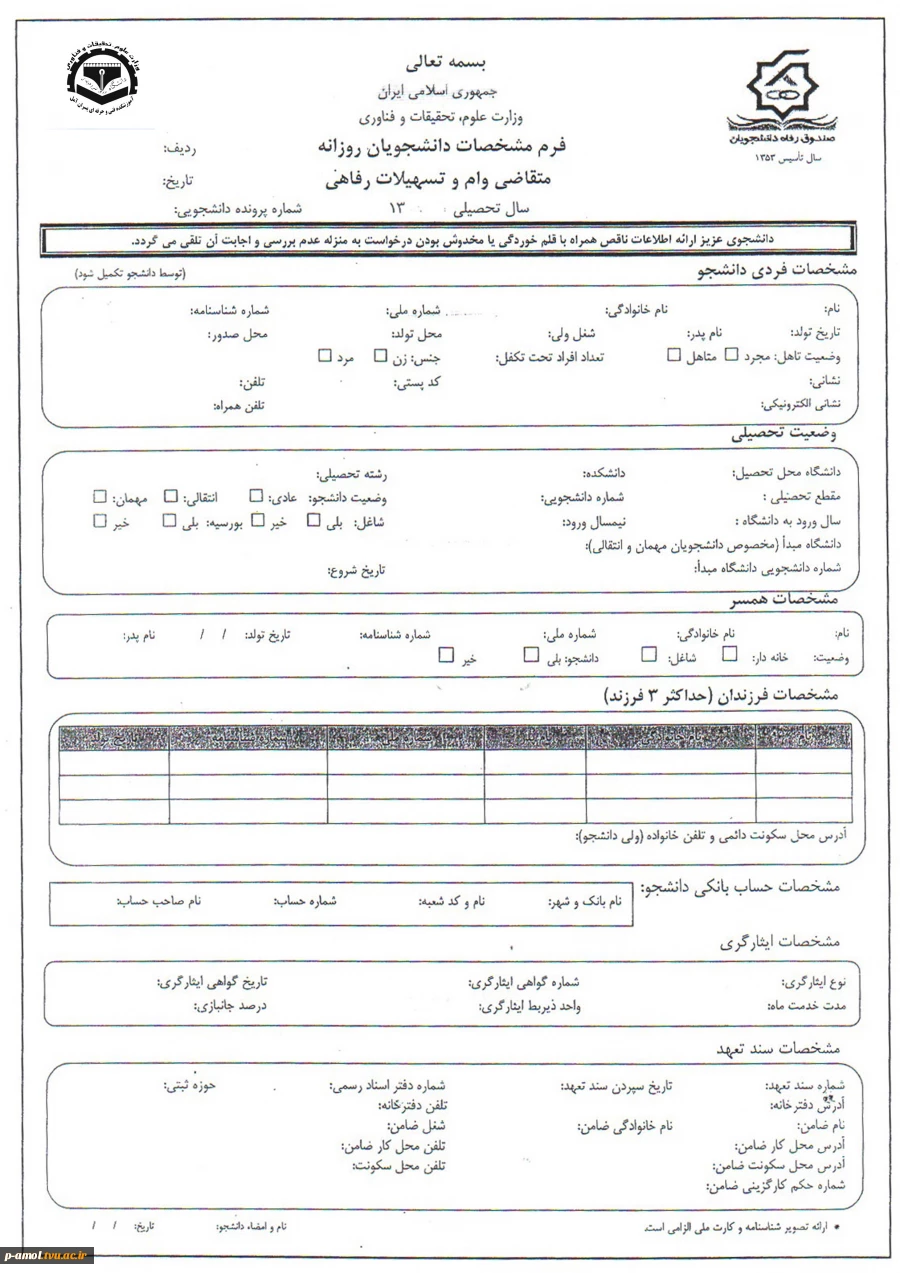 بسمه تعالی
جمهوری اسلامی ایران
وزارت علوم، تحقیقات و فناوری
فرم مشخصات دانشجویان روزانه
متقاضی وام و تسهیلات رفاهی
سال تحصیلی ۱۳
صندوق رفاه دانشجویان
سال تأسیس ۱۳۵۳
ردیف:
تاریخ:
شماره پرونده دانشجویی:
دانشجوی عزیز ارائه اطلاعات ناقص همراه با قلم خوردگی یا مخدوش بودن درخواست به منزله عدم بررسی و اجابت آن تلقی می گردد.
مشخصات فردی دانشجو (توسط دانشجو تکمیل شود)
نام: نام خانوادگی: شماره ملی: شماره شناسنامه:
تاریخ تولد: نام پدر: شغل ولی: محل تولد: محل صدور:
وضعیت تاهل: مجرد متاهل تعداد افراد تحت تکفل: جنس: زن مرد
نشانی: کد پستی: تلفن:
نشانی الکترونیکی: تلفن همراه:
وضعیت تحصیلی
دانشگاه محل تحصیل: دانشکده: رشته تحصیلی:
مقطع تحصیلی : شماره دانشجویی: وضعیت دانشجو: عادی: انتقالی: مهمان:
سال ورود به دانشگاه : نیمسال ورود: شاغل: بلی خیر بورسیه: بلی خیر
دانشگاه مبدأ (مخصوص دانشجویان مهمان و انتقالی):
شماره دانشجویی دانشگاه مبدأ: تاریخ شروع:
مشخصات همسر
نام: نام خانوادگی: شماره ملی: شماره شناسنامه: تاریخ تولد: / / نام پدر:
وضعیت: خانه دار: شاغل: دانشجو: بلی خیر
مشخصات فرزندان (حداکثر ۳ فرزند)
آدرس محل سکونت دائمی و تلفن خانواده (ولی دانشجو):
مشخصات حساب بانکی دانشجو:
نام بانک و شهر: نام و کد شعبه: شماره حساب: نام صاحب حساب:
مشخصات ایثارگری
نوع ایثارگری: شماره گواهی ایثارگری: تاریخ گواهی ایثارگری:
مدت خدمت ماه: واحد ذیربط ایثارگری: درصد جانبازی:
مشخصات سند تعهد
شماره سند تعهد: تاریخ سپردن سند تعهد: شماره دفتر اسناد رسمی: حوزه ثبتی:
آدرس دفترخانه: تلفن دفترخانه:
نام ضامن: نام خانوادگی ضامن: شغل ضامن:
آدرس محل کار ضامن: تلفن محل کار ضامن:
آدرس محل سکونت ضامن: تلفن محل سکونت:
شماره حکم کارگزینی ضامن:
* ارائه تصویر شناسنامه و کارت ملی الزامی است. نام و امضاء دانشجو: تاریخ: / /
p-amol.tvu.ac.ir